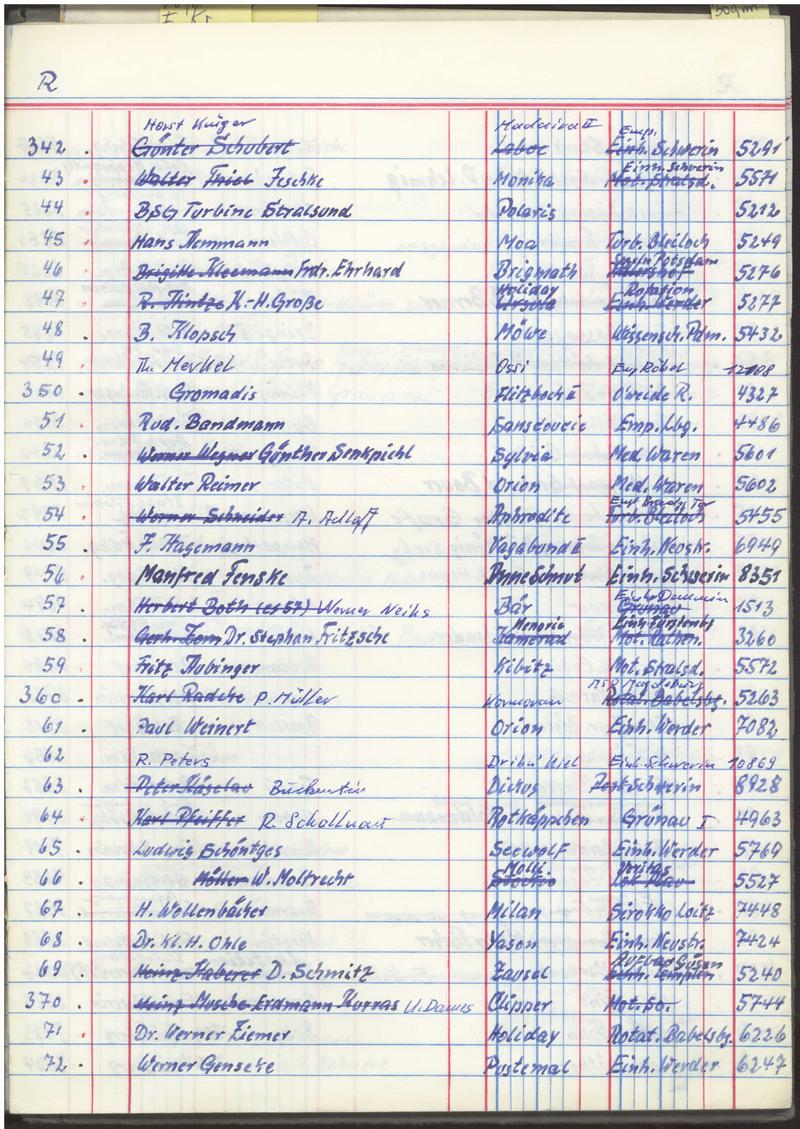 R
Horst Krüger Madaira II Emp.
342 . Günter Schubert Laboe Einh. Schwerin 5291
Einh. Schwerin
43 . Walter Thiel Jeschke Monika Mot. Stralsd. 5571
44 . BSG Turbine Stralsund Polaris 5212
45 . Hans Nemmann Moa Turb. Bleiloch 5249
Potsdam
46 . Brigitte Kleemann Frdr. Ehrhard Brigmath 5276
Holiday Rotation
47 . R. Hintze K.-H. Große Ursula Einh. Werder 5277
48 . B. Klopsch Möwe Wissensch. Pdm. 5432
49 Th. Merkel Ossi Emp Röbel 12108
350 . Gromadis Flitzboch II O'weide R. 4327
51 . Rud. Bandmann Sanssouci Emp. Lbg. 4486
52 . Werner Wegner Günther Senkpiehl Sylvia Med. Waren 5601
53 . Walter Reimer Orion Med. Waren 5602
54 . Werner Schneider A. Adloff Aphrodite Turb. Bleiloch 5455
55 . F. Hagemann Vagabund II Einh. Neustr. 6949
56 . Manfred Fenske Anne Schmut Einh. Schwerin 8351
Einh. Demmin
57 . Herbert Both (es 57) Werner Neiks Bär Grünau 1513
Einh. Fürstenbg
58 . Gerh. Zorn Dr. Stephan Fritzsche Kamerad Mot. Rathen. 3260
59 . Fritz Aubinger Kibitz Mot. Stralsd. 5572
Magdeburg
360 . Karl Radtke P. Müller Kormoran Rotat. Babelsbg. 5263
61 . Paul Weinert Orion Einh. Werder 7082
62 R. Peters Einh. Schwerin 10869
63 . Peter Käselau Schwerin 8928
64 . Karl Pfeiffer R. Schallnau Rotkäppchen Grünau I 4963
65 . Ludwig Schöntges Seewolf Einh. Werder 5769
Molli Veritas
66 . Möller W. Moltrecht Lok Plau 5527
67 . H. Wollenbäcker Milan Sirokko Loitz 7448
68 . Dr. Kl. H. Ohle Yason Einh. Neustr. 7424
Aufbau Güsen
69 . Heinz Haberer D. Schmitz Zausel Einh. Templin 5240
370 . Heinz Musche Erdmann Kurras U. Dames Clipper Mot. So. 5744
71 . Dr. Werner Ziemer Holiday Rotat. Babelsbg. 6226
72 . Werner Genseke Pustemal Einh. Werder 6247